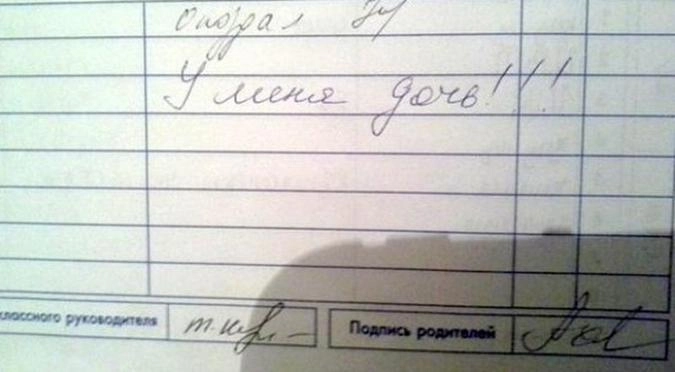 Опоздал
У меня дочь!!!
классного руководителя
Подпись родителей